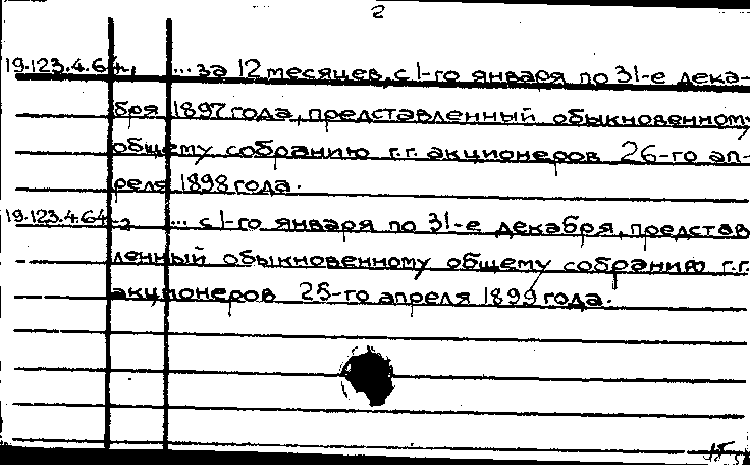 2
19.123.4.64-1, ...за 12 месяцев, с 1-го января по 31-е дека-
бря 1897 года, представленный обыкновенному
общему собранию г.г. акционеров 26-го ап-
реля 1898 года.
19.123.4.64-2 ... с 1-го января по 31-е декабря, представ
ленный обыкновенному общему собранию г.г.
акционеров 25-го апреля 1899 года.